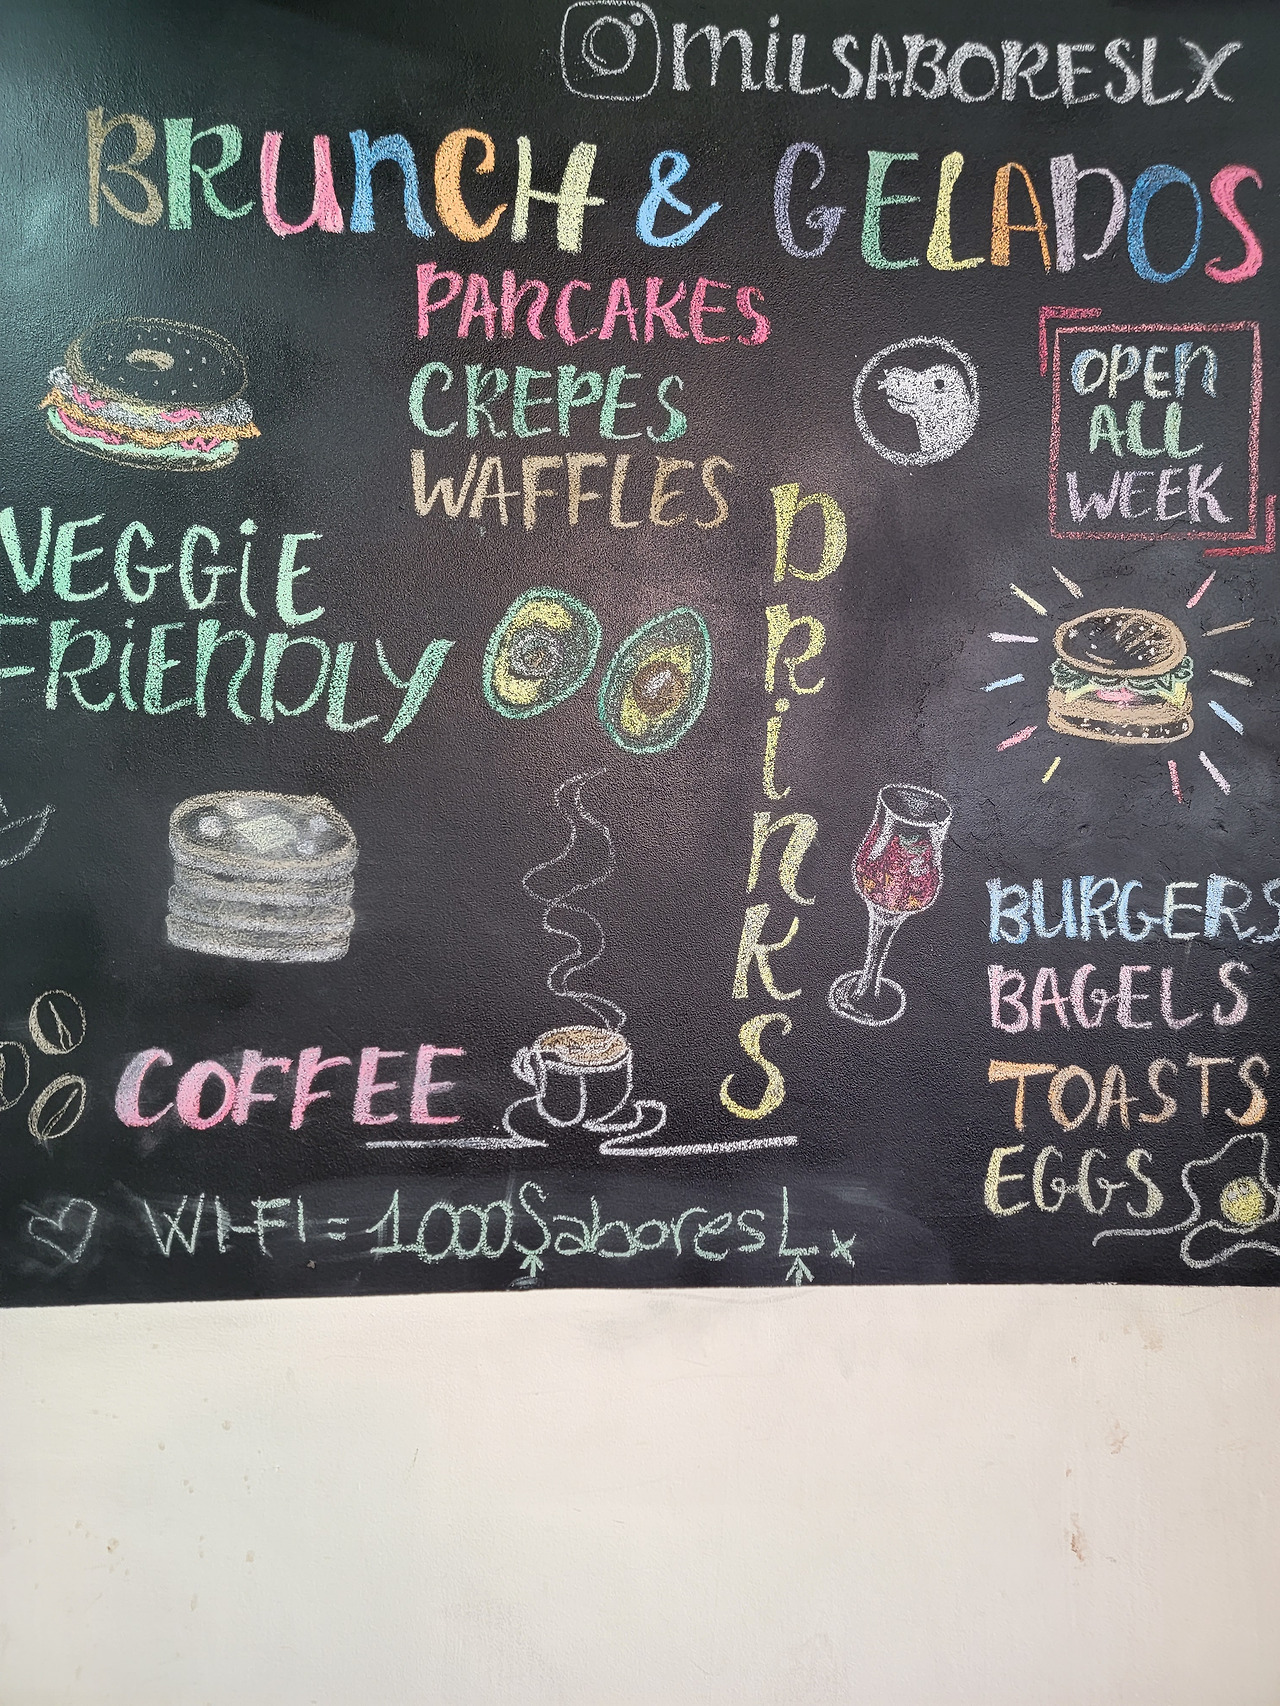 milSABORESLX
BRUNCH & GELADOS
PANCAKES
CREPES
WAFFLES
OPEN
ALL
WEEK
VEGGiE
FRiENDLY
DRinKS
BURGERS
BAGELS
TOASTS
EGGS
COFFEE
WI-FI = 1000SaboresLx